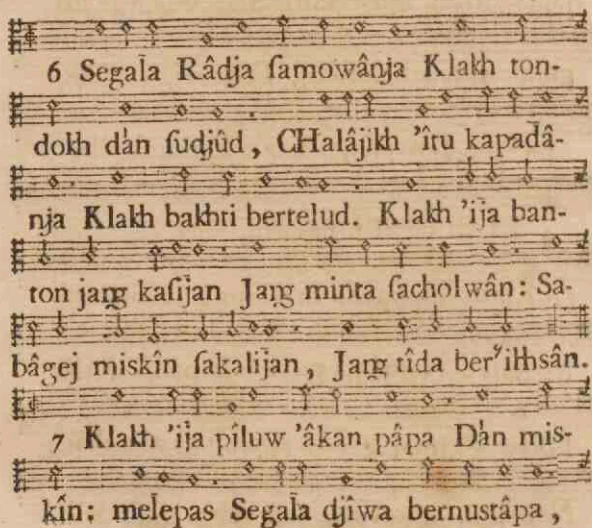 6 Segala Râdja ſamowânja Klakh ton-
dokh dàn ſudjûd, CHalâjikh 'îtu kapadâ-
nja Klakh bakhti bertelud. Klakh 'ija ban-
ton jang kaſijan Jang minta ſacholwân: Sa-
bâgej miskîn ſakalijan, Jang tîda berʼiḥsân.
7 Klakh 'ija pîluw 'âkan pâpa Dàn mis-
kîn: melepas Segala djîwa bernustâpa,